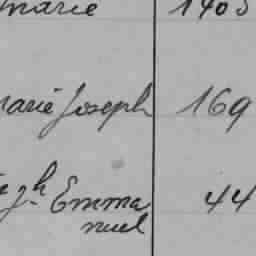 marie 1405
marie Joseph 169
Emma
nuel 44